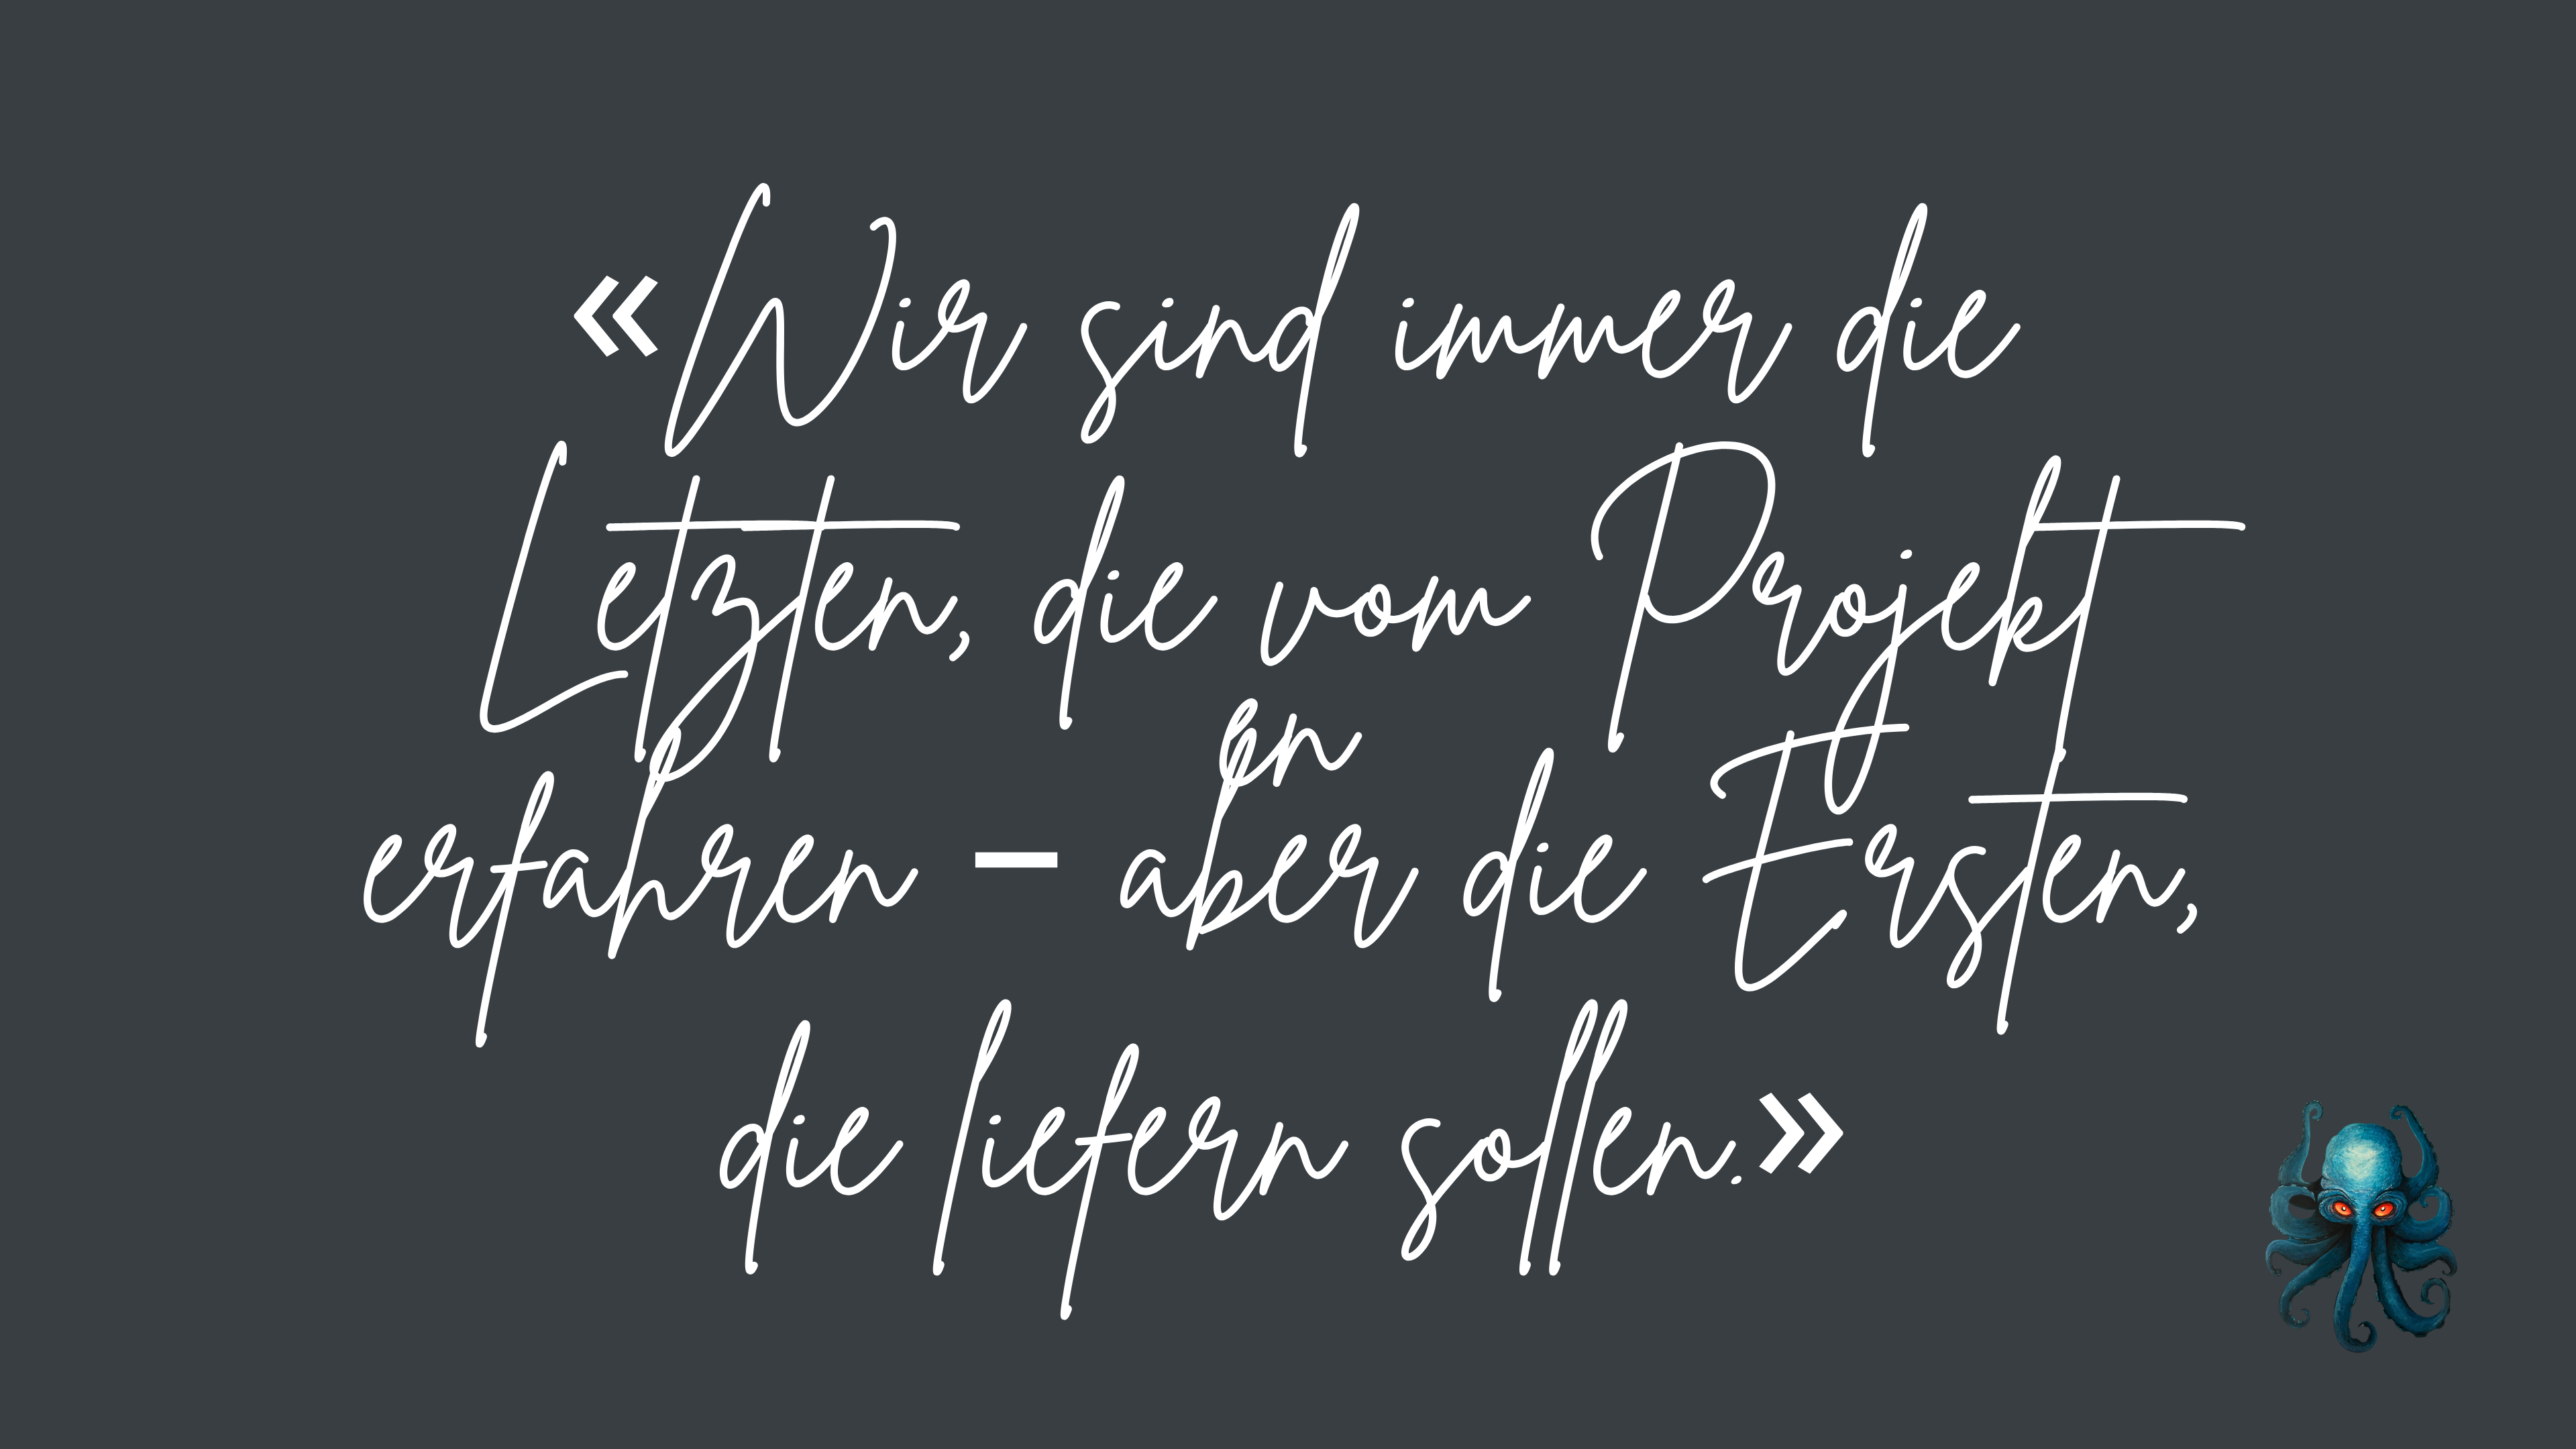 «Wir sind immer die
Letzten, die vom Projekt
en
erfahren – aber die Ersten,
die liefern sollen.»